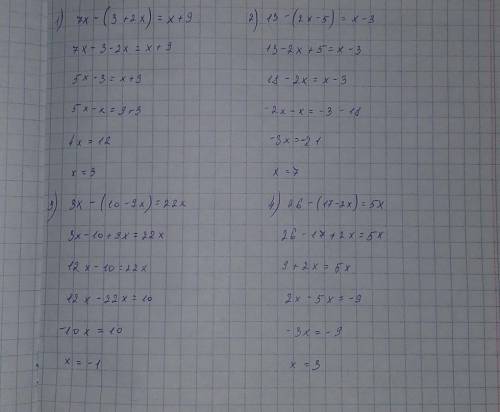 1) 7x - (3 + 2x) = x + 9
7x - 3 - 2x = x + 9
5x - 3 = x + 9
5x - x = 9 + 3
4x = 12
x = 3
2) 13 - (2x - 5) = x - 3
13 - 2x + 5 = x - 3
18 - 2x = x - 3
-2x - x = -3 - 18
-3x = -21
x = 7
3) 3x - (10 - 9x) = 22x
3x - 10 + 9x = 22x
12x - 10 = 22x
12x - 22x = 10
-10x = 10
x = -1
4) 26 - (17 - 2x) = 5x
26 - 17 + 2x = 5x
9 + 2x = 5x
2x - 5x = -9
-3x = -9
x = 3